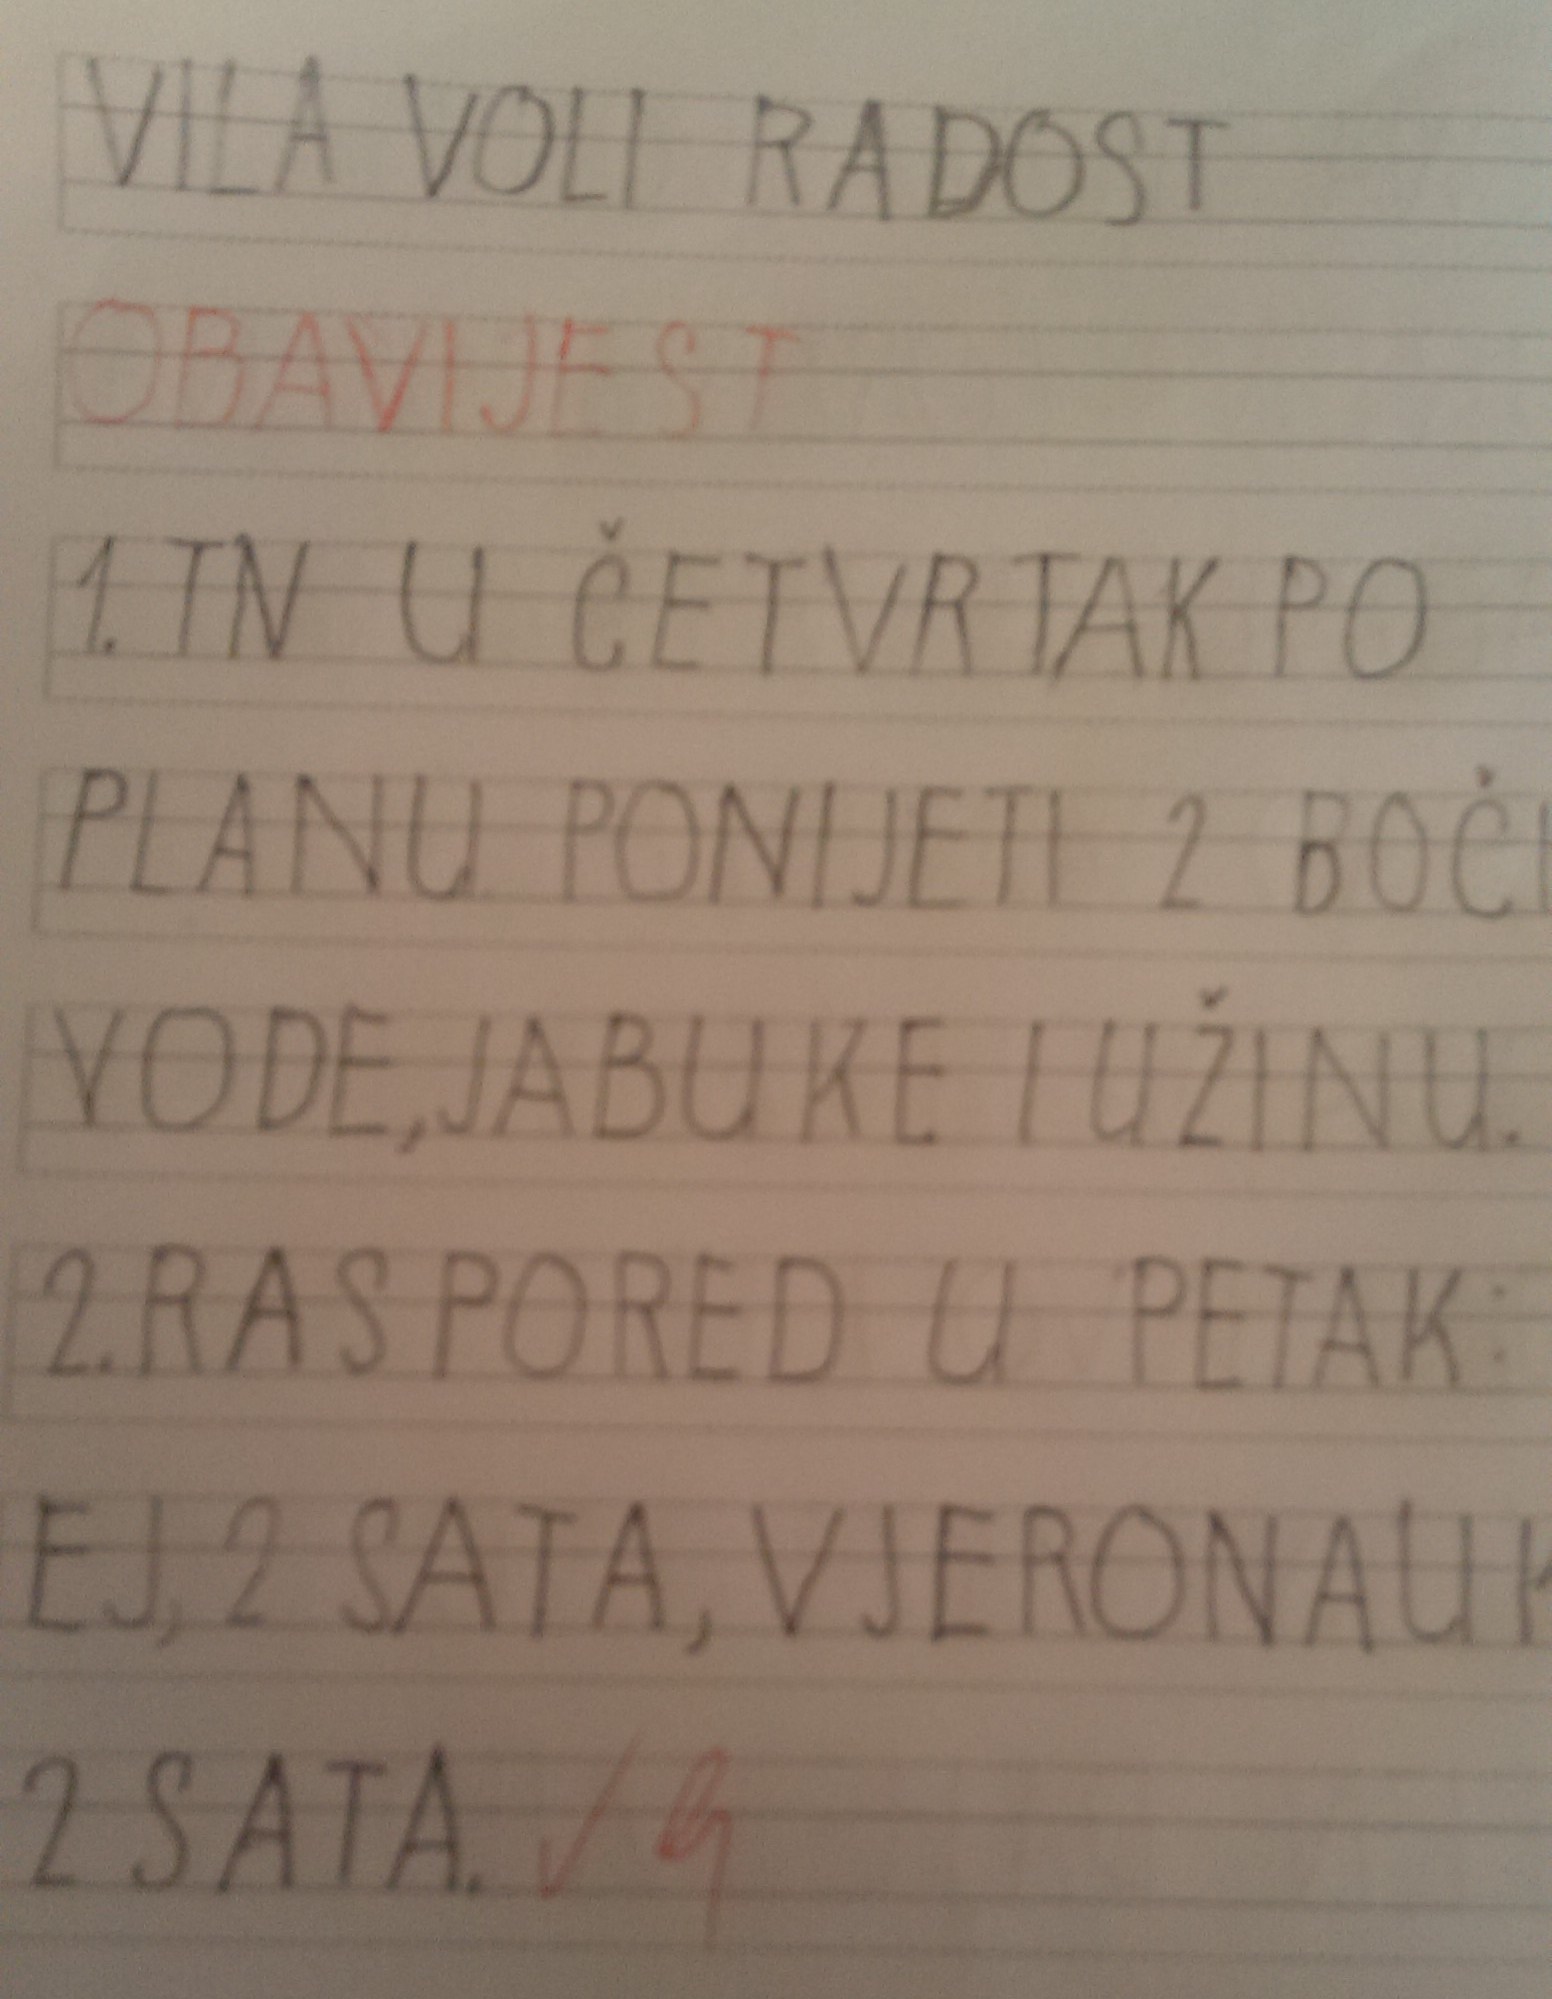 VILA VOLI RADOST
OBAVIJEST
1. TN U ČETVRTAK PO
PLANU PONIJETI 2 BOČI
VODE, JABUKE I UŽINU.
2. RASPORED U PETAK:
EJ, 2 SATA, VJERONAUK
2 SATA.